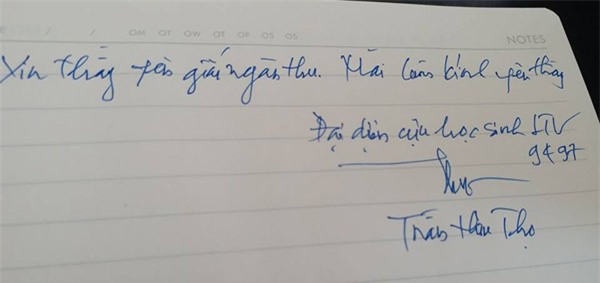 / / OM OT OW OT OF OS OS
NOTES
Xin thầy yên giấc ngàn thu. Mãi luôn kính yêu thầy
Đại diện cựu học sinh LTV
9497
Trần Thọ